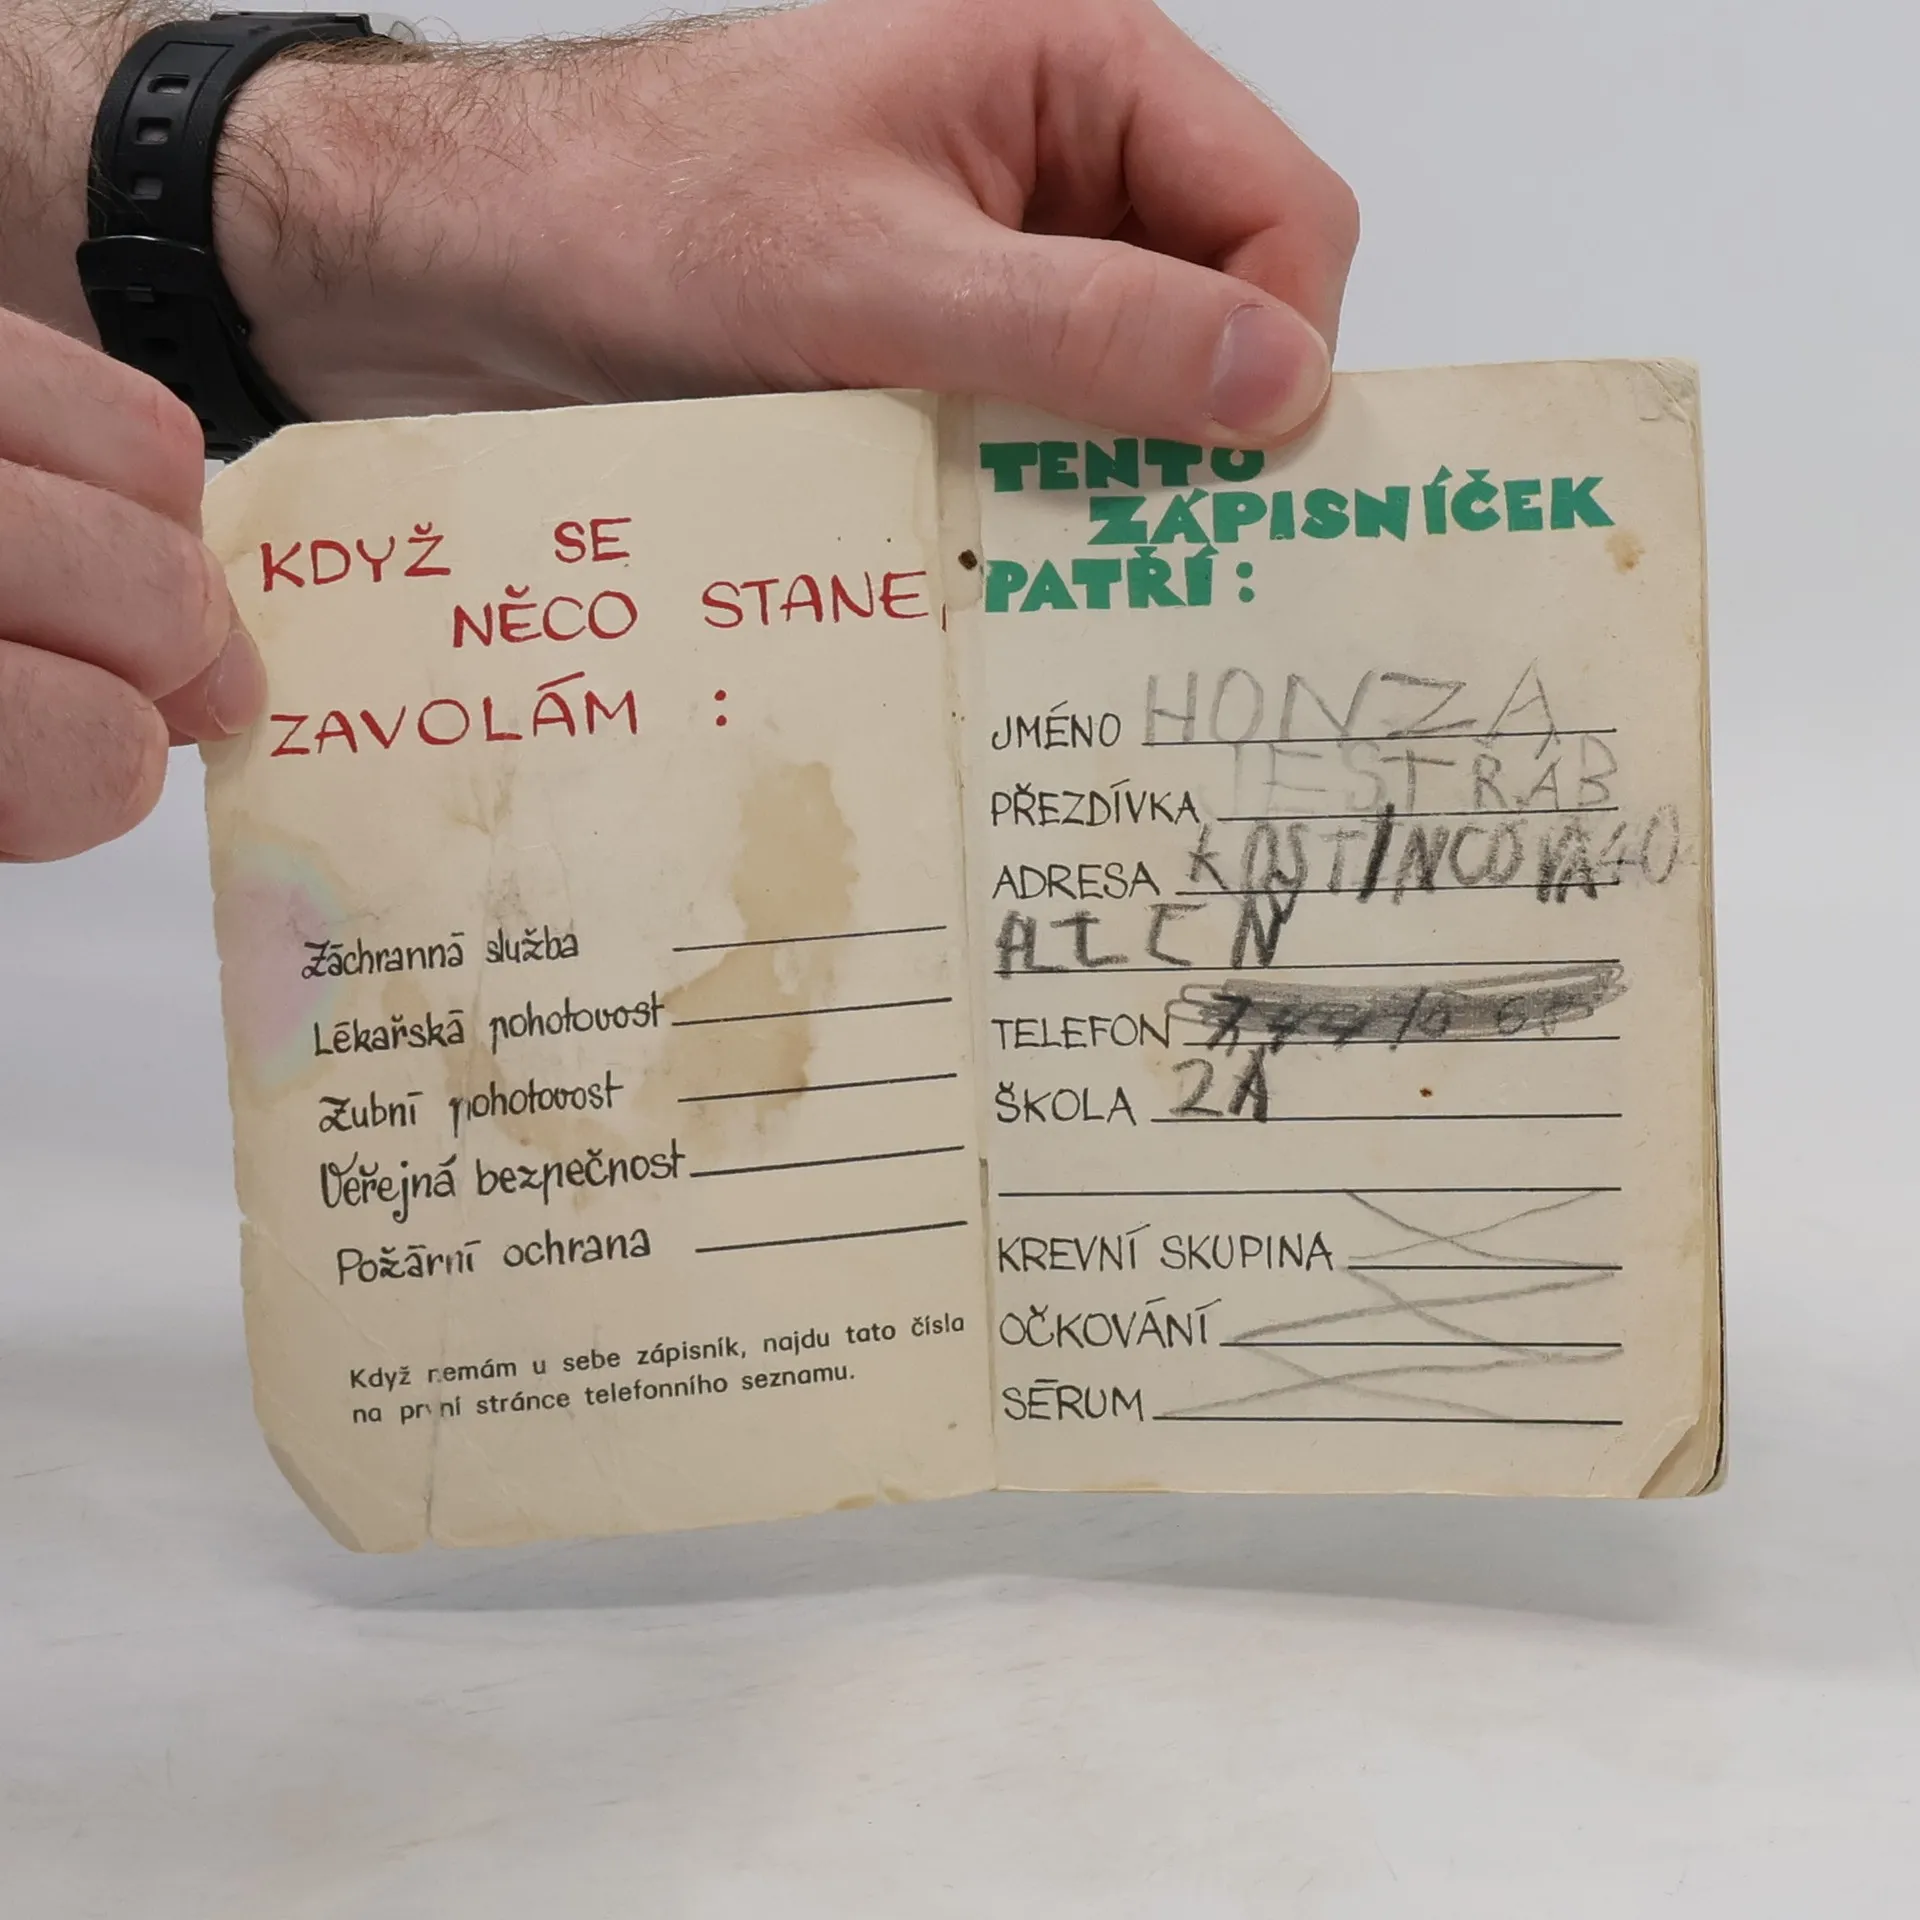 KDYŽ SE
NĚCO STANE,
ZAVOLÁM :
Záchranná služba
Lékařská pohotovost
Zubní pohotovost
Veřejná bezpečnost
Požární ochrana
Když nemám u sebe zápisník, najdu tato čísla
na první stránce telefonního seznamu.
TENTO
ZÁPISNÍČEK
PATŘÍ :
JMÉNO HONZA
PŘEZDÍVKA JESTRÁB
ADRESA
TELEFON
ŠKOLA 2A
KREVNÍ SKUPINA
OČKOVÁNÍ
SÉRUM